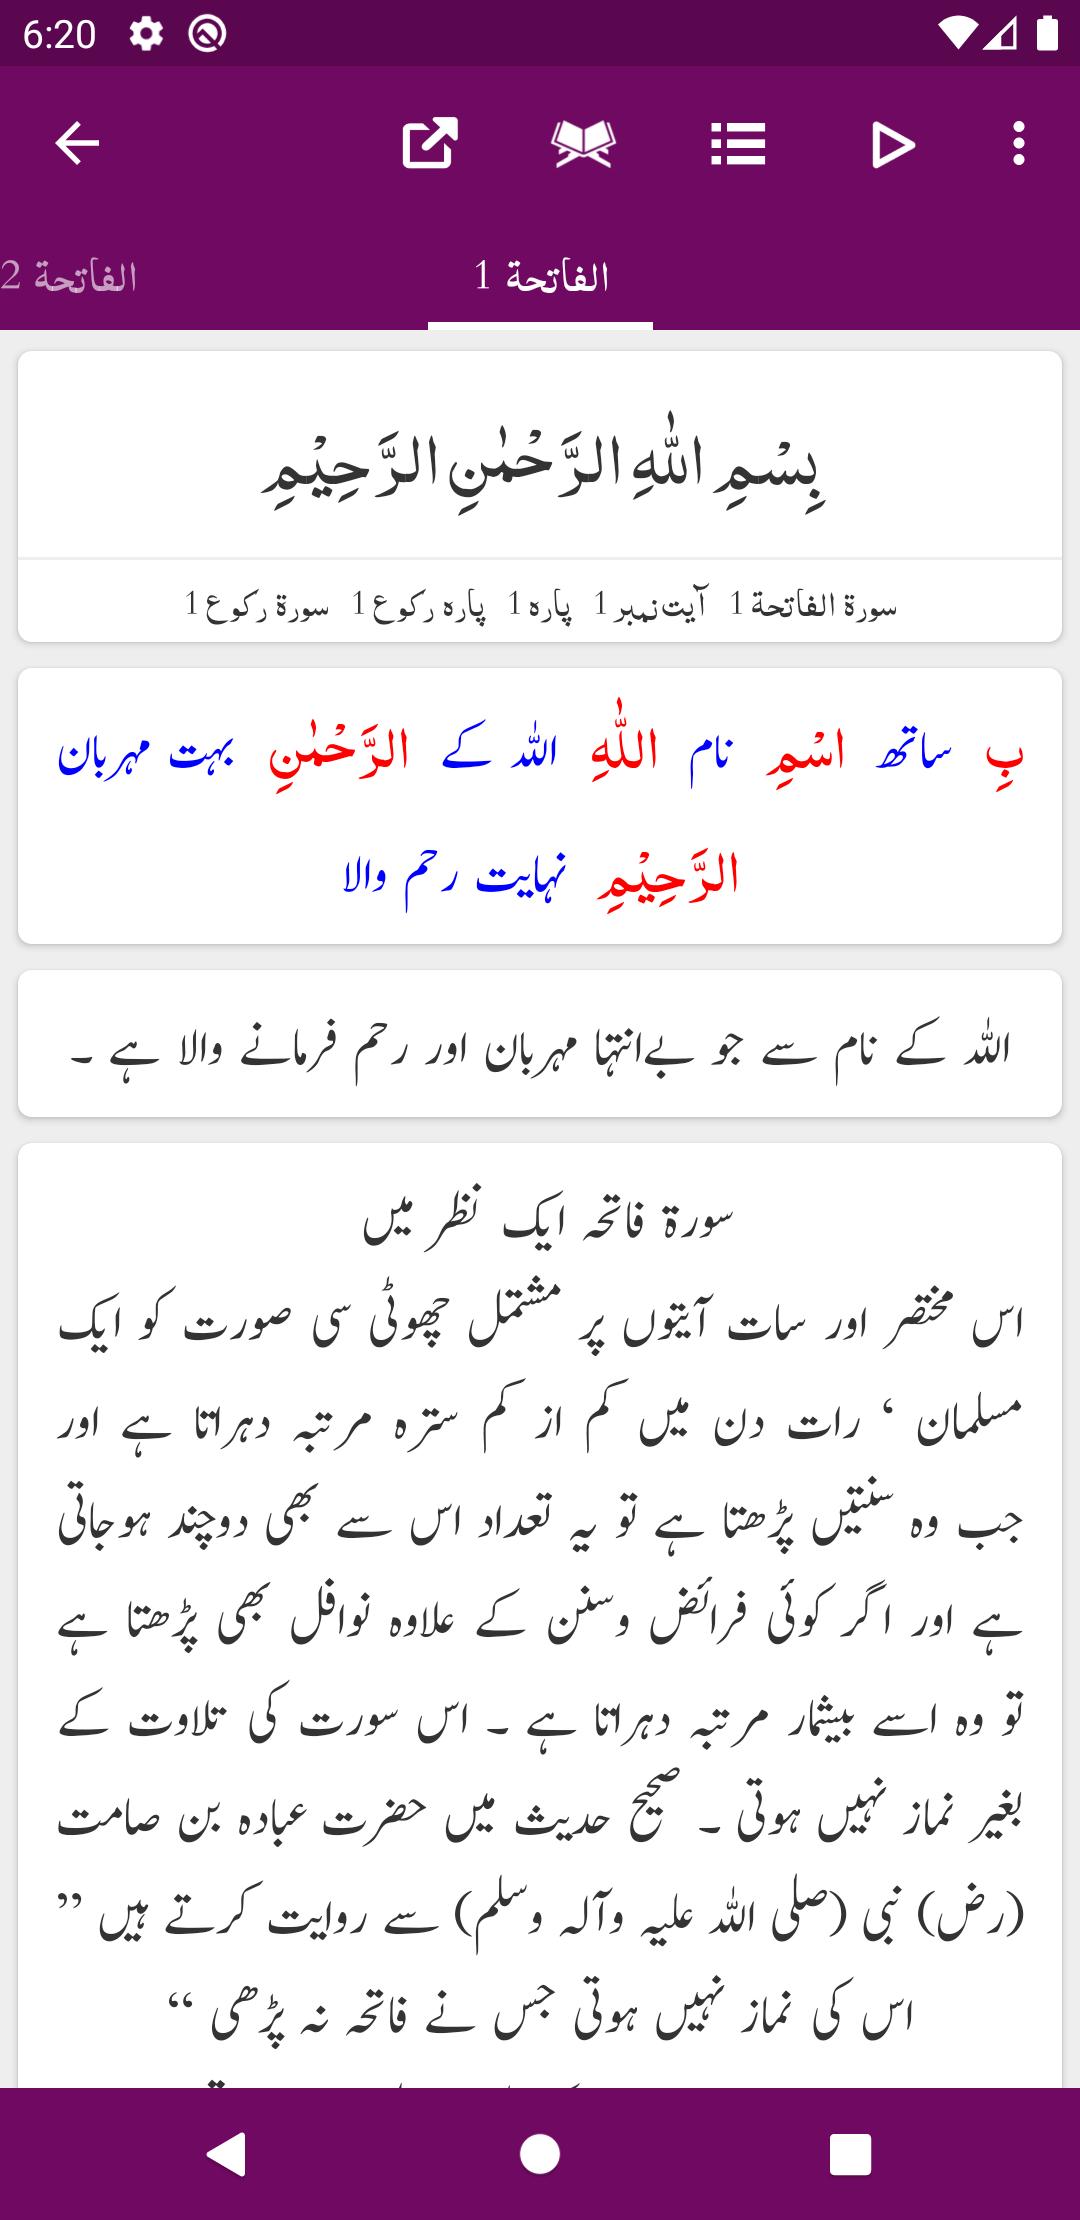 6:20
الفاتحة 1
الفاتحة 2
بِسْمِ اللّٰهِ الرَّحْمٰنِ الرَّحِيْمِ
سورۃ الفاتحة 1 آیت نمبر 1 پارہ 1 پارہ رکوع 1 سورۃ رکوع 1
بِ ساتھ اسْمِ نام اللّٰهِ اللہ کے الرَّحْمٰنِ بہت مہربان
الرَّحِيْمِ نہایت رحم والا
اللہ کے نام سے جو بےانتہا مہربان اور رحم فرمانے والا ہے ۔
سورة فاتحہ ایک نظر میں
اس مختصر اور سات آیتوں پر مشتمل چھوٹی سی صورت کو ایک
مسلمان ‘ رات دن میں کم از کم سترہ مرتبہ دہراتا ہے اور
جب وہ سنتیں پڑھتا ہے تو یہ تعداد اس سے بھی دوچند ہوجاتی
ہے اور اگر کوئی فرائض وسنن کے علاوہ نوافل بھی پڑھتا ہے
تو وہ اسے بیشمار مرتبہ دہراتا ہے ۔ اس سورت کی تلاوت کے
بغیر نماز نہیں ہوتی ۔ صحیح حدیث میں حضرت عبادہ بن صامت
(رض) نبی (صلی اللہ علیہ وآلہ وسلم) سے روایت کرتے ہیں ”
اس کی نماز نہیں ہوتی جس نے فاتحہ نہ پڑھی “